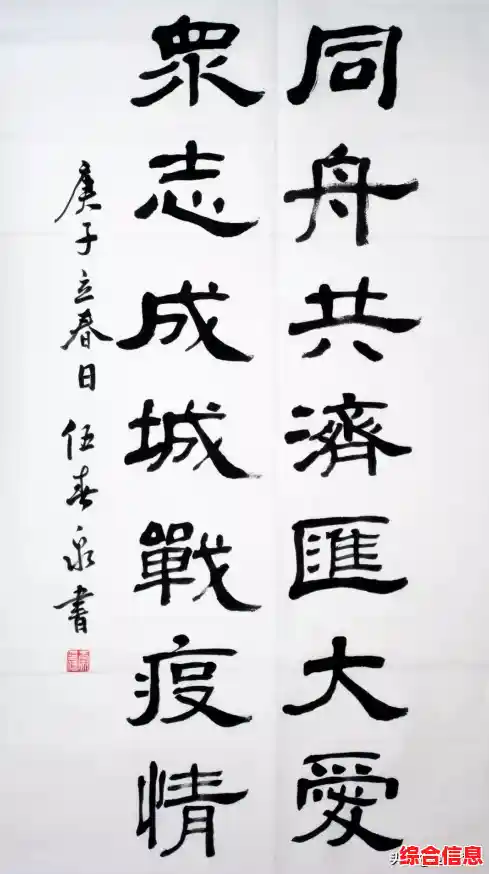 同舟共濟匯大愛
眾志成城戰疫情
庚子立春日伍春泉書
综合信息